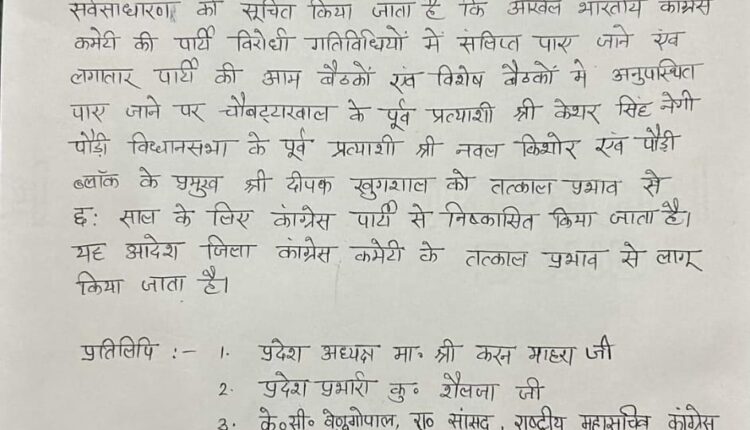 सर्वसाधारण को सूचित किया जाता है कि अखिल भारतीय कांग्रेस
कमेटी की पार्टी विरोधी गतिविधियों में संलिप्त पाए जाने एंव
लगातार पार्टी की आम बैठकों एंव विशेष बैठकों में अनुपस्थित
पाए जाने पर चौबट्टाखाल के पूर्व प्रत्याशी श्री केशर सिंह नेगी
पौड़ी विधानसभा के पूर्व प्रत्याशी श्री नवल किशोर एंव पौड़ी
ब्लॉक के प्रमुख श्री दीपक खुगशाल को तत्काल प्रभाव से
छ: साल के लिए कांग्रेस पार्टी से निष्कासित किया जाता है।
यह आदेश जिला कांग्रेस कमेटी के तत्काल प्रभाव से लागू
किया जाता है।
प्रतिलिपि :- 1. प्रदेश अध्यक्ष मा॰ श्री करन माहरा जी
2. प्रदेश प्रभारी कु॰ शैलजा जी
3. के॰सी॰ वेणुगोपाल, रा॰ सांसद, राष्ट्रीय महासचिव कांग्रेस